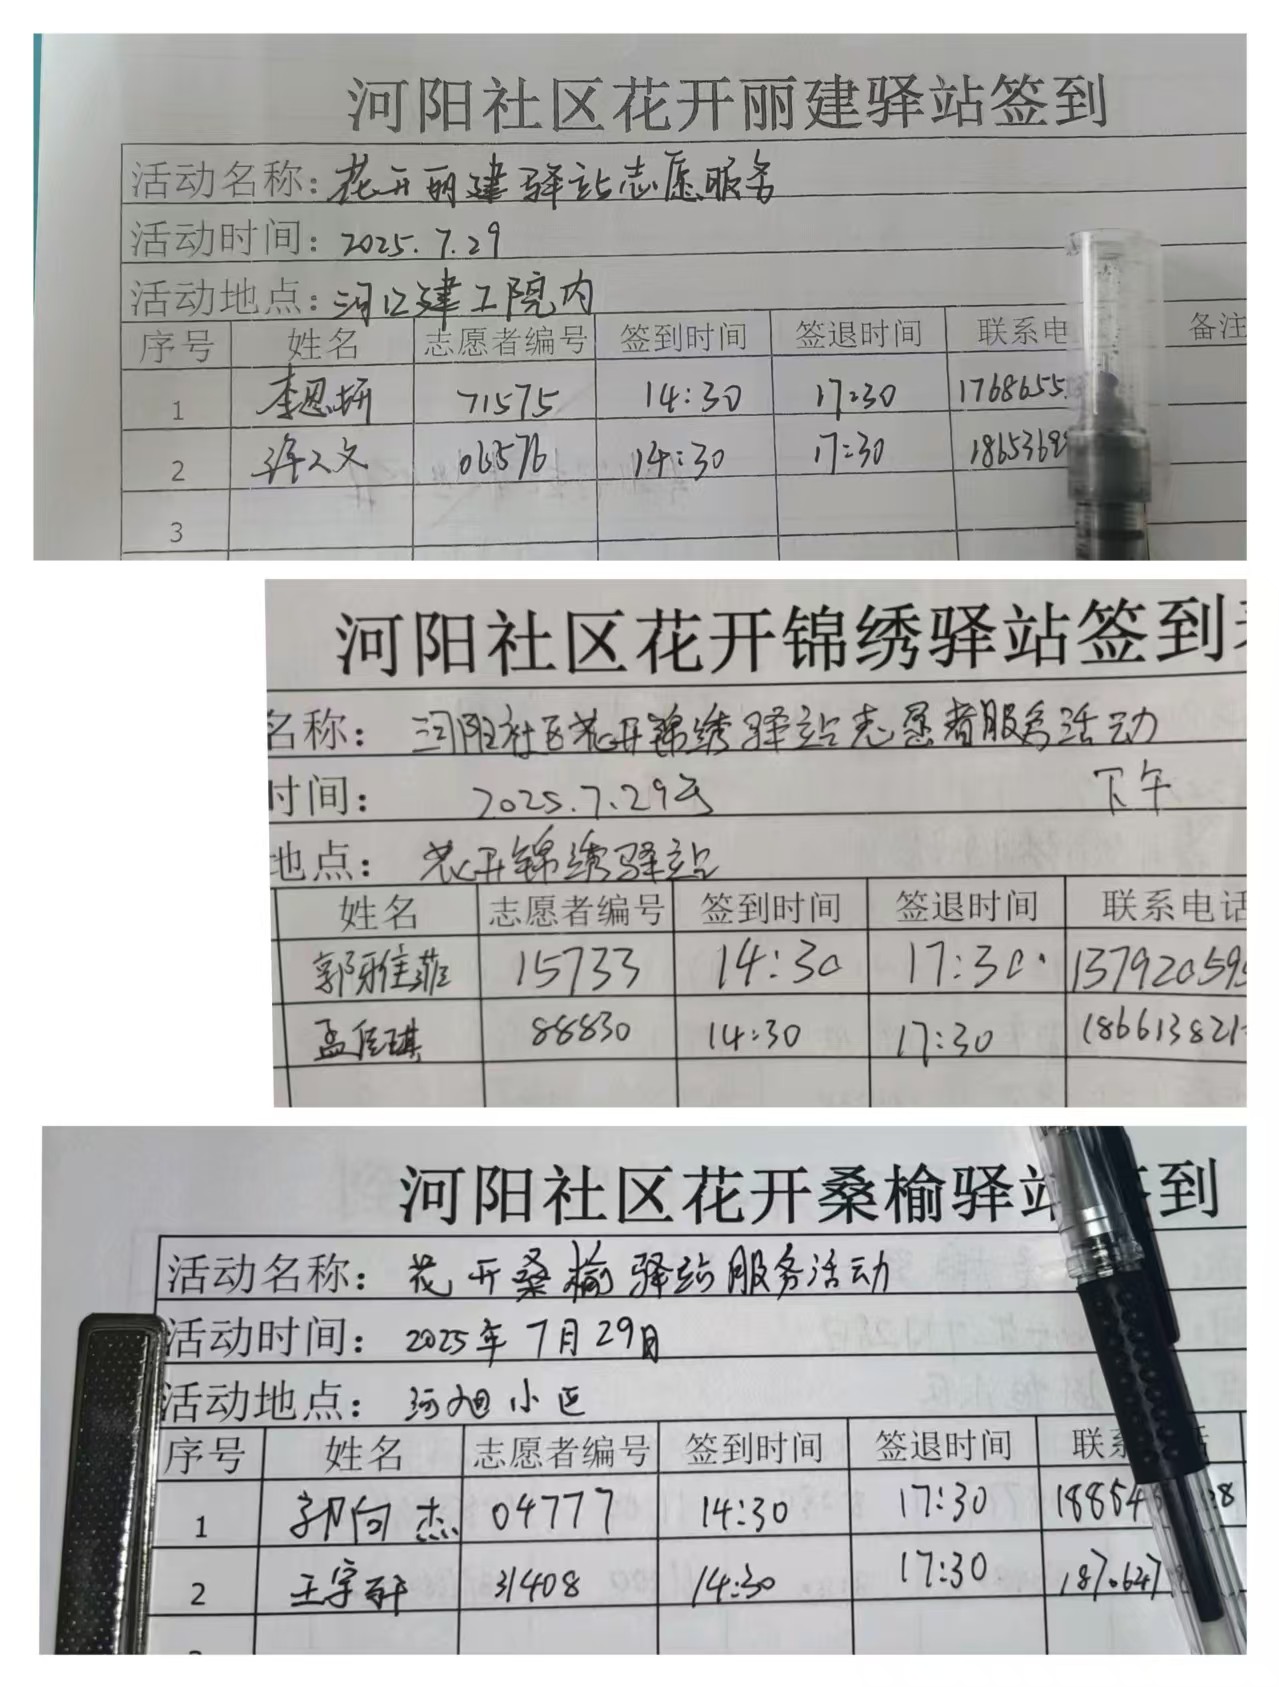 河阳社区花开丽建驿站签到
活动名称：花开丽建驿站志愿服务
活动时间：2025.7.29
活动地点：河口建工院内
序号 姓名 志愿者编号 签到时间 签退时间 联系电 备注
1 李恩妍 71575 14:30 17:30 1768655
2 文 06576 14:30 17:30 1865368
3
河阳社区花开锦绣驿站签到
名称：河阳社区花开锦绣驿站志愿者服务活动
时间：2025.7.29号 下午
地点：花开锦绣驿站
姓名 志愿者编号 签到时间 签退时间 联系电话
郭雅菲 15733 14:30 17:30 137920595
孟佳琪 88830 14:30 17:30 186613821
河阳社区花开桑榆驿站签到
活动名称：花开桑榆驿站服务活动
活动时间：2025年7月29日
活动地点：河旭小区
序号 姓名 志愿者编号 签到时间 签退时间 联系 话
1 郭向杰 04777 14:30 17:30 18854 38
2 王宇轩 31408 14:30 17:30 187.647